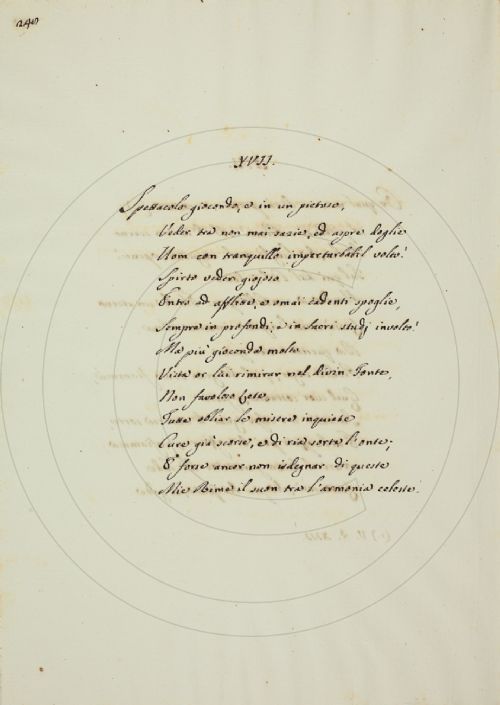 240
XVII.
Spettacolo giocondo, e in un pietoso,
Veder tra non mai sazie, ed aspre doglie
Uom con tranquillo imperturbabil volto!
Spirto veder gioioso
Entro ad afflitte, e omai cadenti spoglie,
Sempre in profondi, e in sacri studj involto!
Ma più gioconda molto
Vista or lui rimirar nel Divin Fonte,
Non favoloso Lete,
Tutte obliar le misere inquiete
Cure già scorse, e di ria sorte l'onte;
E forse ancor non isdegnar di queste
Mie Rime il suon tra l'armonia celeste.